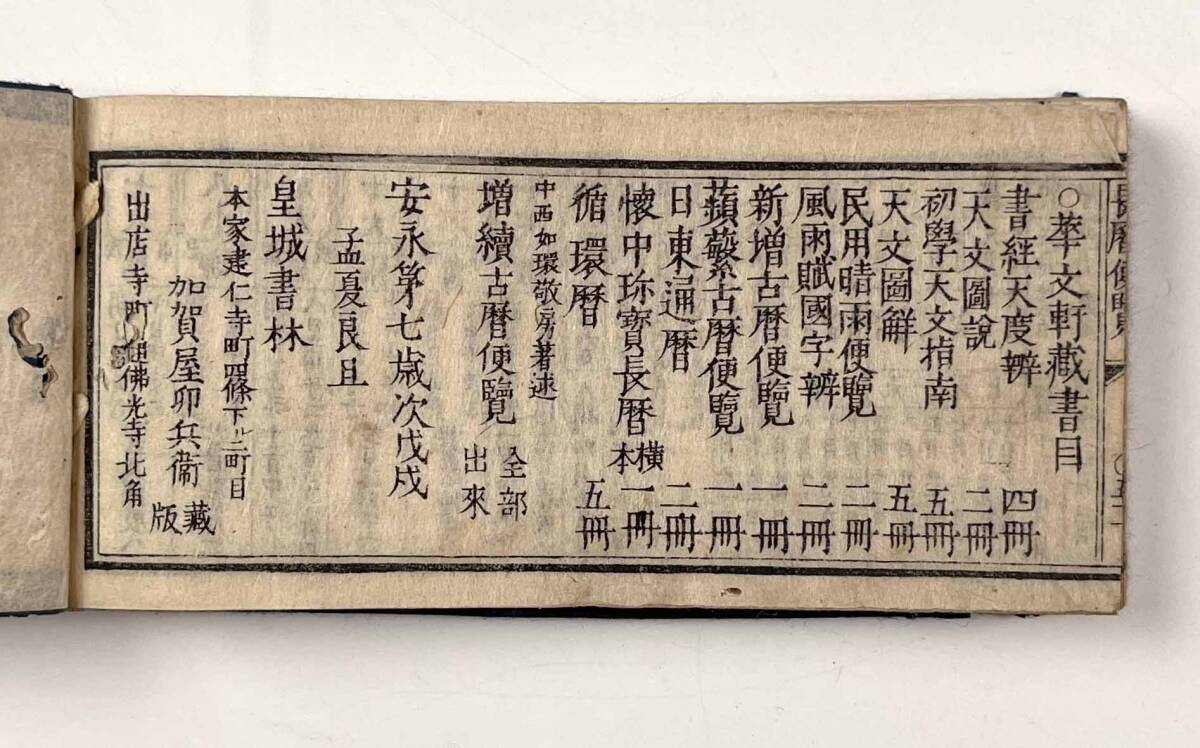 ○華文軒藏書目
書經天度辨 四冊
天文圖說 二冊
初學天文指南 五冊
天文圖解 五冊
民用晴雨便覽 二冊
風雨賦國字辨 二冊
新增古曆便覽 一冊
蘋蘩古曆便覽 一冊
日東通曆 二冊
懷中珎寶長曆 橫本 一冊
循環曆 五冊
中西如環敬房著述
增續古曆便覽 全部出來
安永第七歳次戊戌
孟夏良且
皇城書林
本家建仁寺町四條下ル二町目
加賀屋卯兵衞 藏版
出店寺町通佛光寺北角